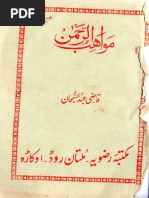 مواہب الرحمٰن
قاضی عبدالسبحان
مکتبہ رضویہ - ملتان روڈ - اوکاڑہ